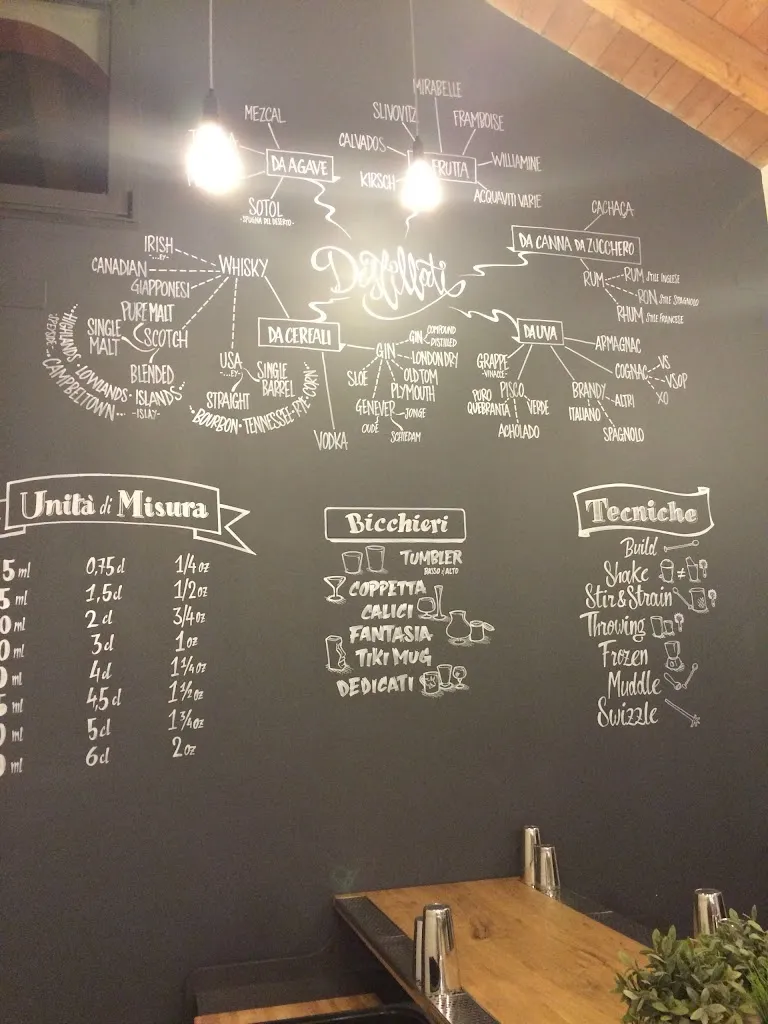 MIRABELLE
MEZCAL
SLIVOVITZ
FRAMBOISE
CALVADOS
DA AGAVE
FRUTTA
WILLIAMINE
KIRSCH
ACQUAVITI VARIE
SOTOL
CACHAÇA
DA CANNA DA ZUCCHERO
IRISH
-EY-
CANADIAN
WHISKY
GIAPPONESI
Distillati
RUM
RUM STILE INGLESE
RON STILE SPAGNOLO
RHUM STILE FRANCESE
PURE MALT
SINGLE MALT
SCOTCH
BLENDED
HIGHLANDS · LOWLANDS · ISLANDS
SPEYSIDE · CAMPBELTOWN · ISLAY
DA CEREALI
USA
-EY-
SINGLE BARREL
STRAIGHT
BOURBON · TENNESSEE · RYE · CORN
VODKA
GIN
GIN COMPOUND DISTILLED
LONDON DRY
OLD TOM
PLYMOUTH
SLOE
GENEVER
JONGE
OUDE
SCHIEDAM
DA UVA
ARMAGNAC
GRAPPE
-VINACCE-
COGNAC
VS
VSOP
XO
PISCO
PURO
QUEBRANTA
VERDE
ACHOLADO
BRANDY
ALTRI
ITALIANO
SPAGNOLO
Unità di Misura
5 ml 0,75cl 1/4 oz
5 ml 1,5cl 1/2 oz
0 ml 2cl 3/4 oz
0 ml 3cl 1 oz
0 ml 4cl 1 1/4 oz
5 ml 4,5cl 1 1/2 oz
0 ml 5cl 1 3/4 oz
0 ml 6cl 2 oz
Bicchieri
TUMBLER
BASSO E ALTO
COPPETTA
CALICI
FANTASIA
TIKI MUG
DEDICATI
Tecniche
Build
Shake
Stir & Strain
Throwing
Frozen
Muddle
Swizzle